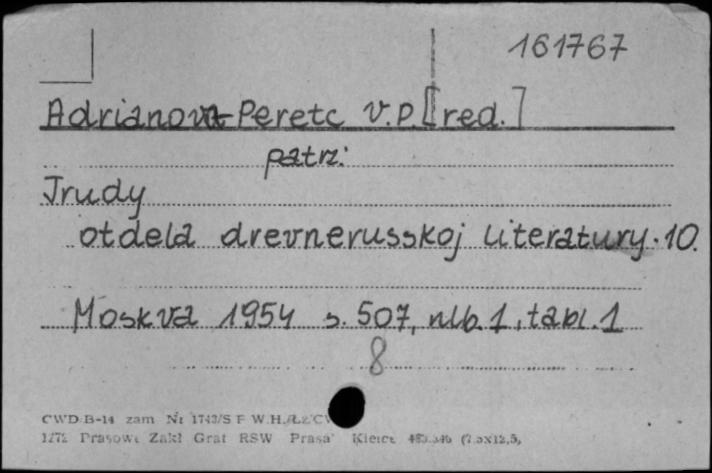 161767
Adrianova-Peretc V.P. [red.]
patrz:
Trudy
otdela drevnerusskoj literatury. 10.
Moskva 1954 s. 507, nlb. 1, tabl. 1
8
CWD/B-14 zam Nr 1743/S F W.H.
1/72 Prasowe Zakł Graf RSW Prasa Kielce (7.5x12,5,